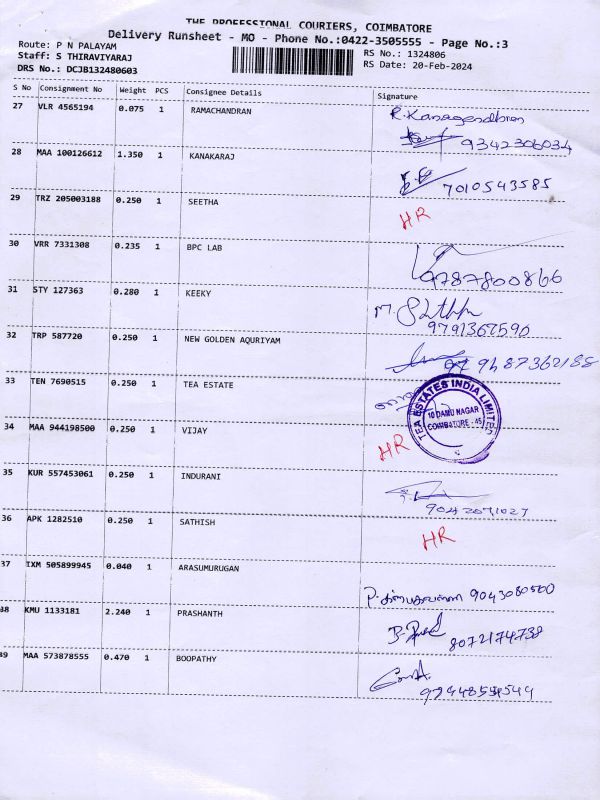 THE PROFESSIONAL COURIERS, COIMBATORE
Delivery Runsheet - MO - Phone No.:0422-3505555 - Page No.:3
Route: P N PALAYAM
RS No.: 1324806
Staff: S THIRAVIYARAJ
RS Date: 20-Feb-2024
DRS No.: DCJB132480603
S No Consignment No Weight PCS Consignee Details Signature
27 VLR 4565194 0.075 1 RAMACHANDRAN R. Kanagendhran
9342306034
28 MAA 100126612 1.350 1 KANAKARAJ
7010543585
29 TRZ 205003188 0.250 1 SEETHA HR
30 VRR 7331308 0.235 1 BPC LAB
9787800866
31 STY 127363 0.280 1 KEEKY M.
9791367590
32 TRP 587720 0.250 1 NEW GOLDEN AQURIYAM
9487362188
33 TEN 7690515 0.250 1 TEA ESTATE
TEA ESTATES INDIA LIMITED
10 DAMU NAGAR
COIMBATORE - 45
34 MAA 944198500 0.250 1 VIJAY HR
35 KUR 557453061 0.250 1 INDURANI
9042071027
36 APK 1282510 0.250 1 SATHISH HR
37 IXM 505899945 0.040 1 ARASUMURUGAN
P. 9043080500
38 KMU 1133181 2.240 1 PRASHANTH
8072174738
39 MAA 573878555 0.470 1 BOOPATHY